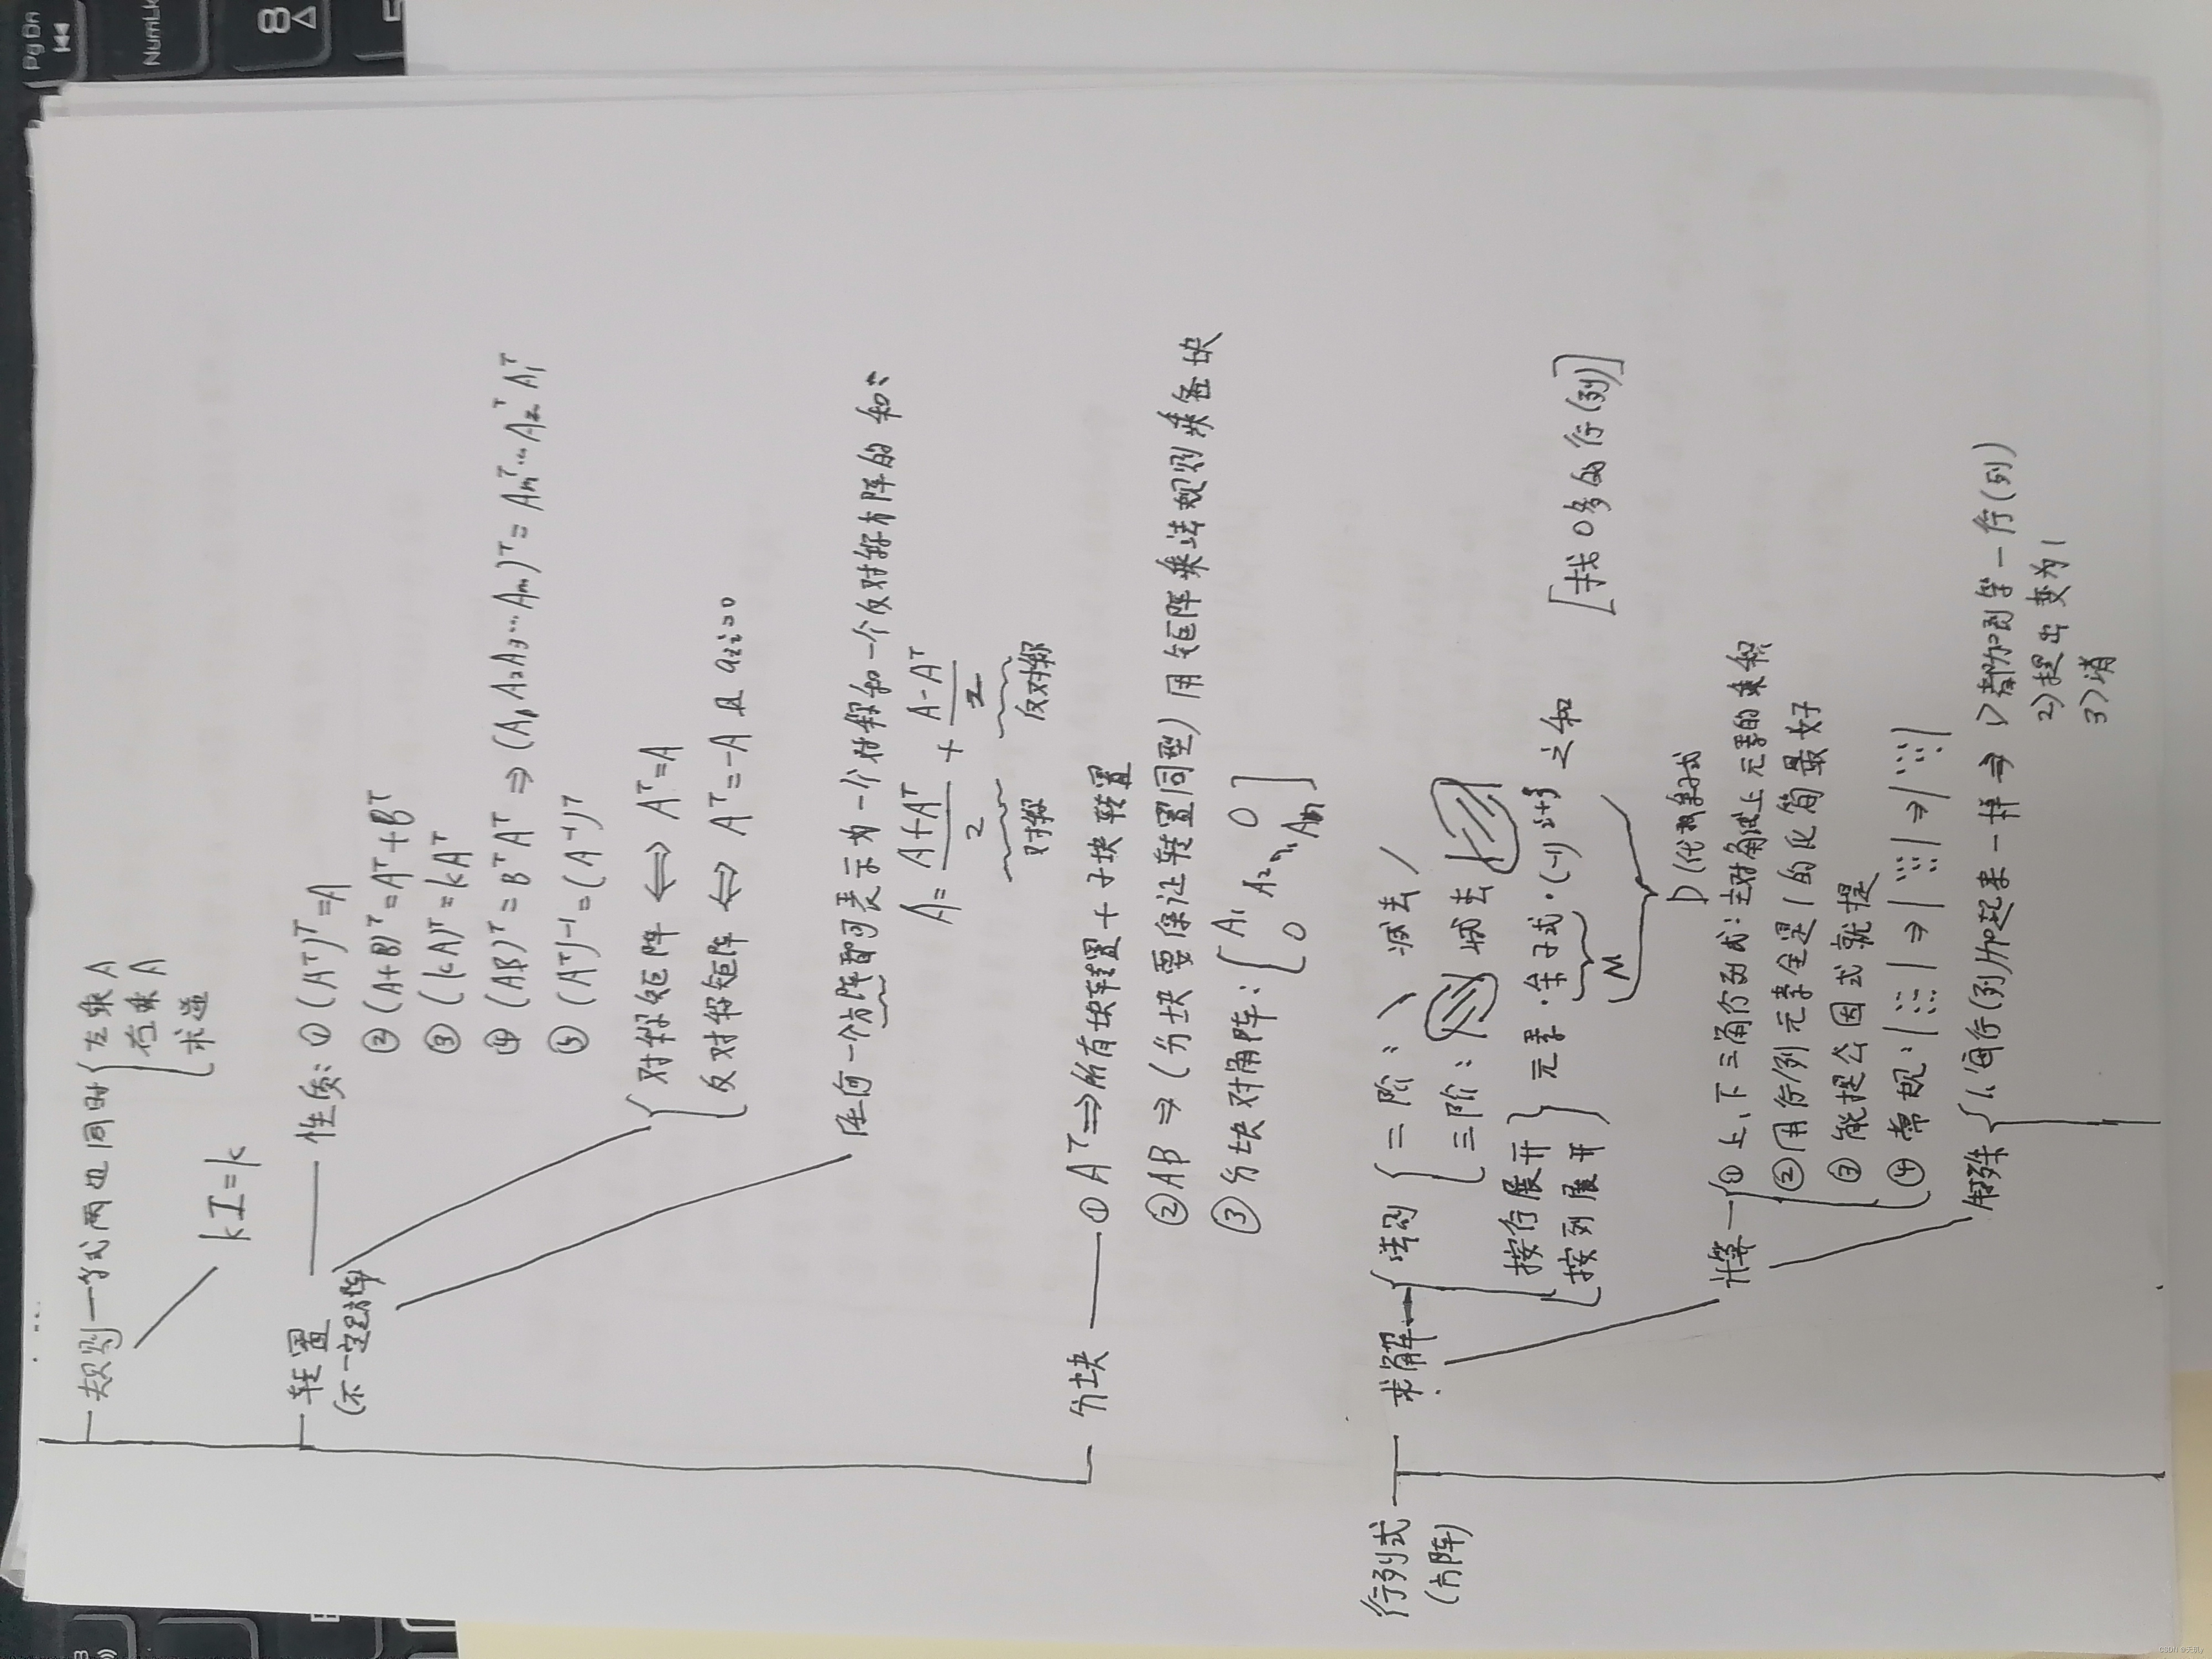 规则 — 等式两边同时 { 左乘A
右乘A
求逆
kI=k
转置
(不一定是方阵)
性质: ① (Aᵀ)ᵀ=A
② (A+B)ᵀ=Aᵀ+Bᵀ
③ (kA)ᵀ=kAᵀ
④ (AB)ᵀ=BᵀAᵀ ⇒ (A₁A₂A₃…Aₘ)ᵀ=Aₘᵀ…A₂ᵀA₁ᵀ
⑤ (Aᵀ)⁻¹=(A⁻¹)ᵀ
{ 对称矩阵 ⇔ Aᵀ=A
反对称矩阵 ⇔ Aᵀ=-A 且 aᵢᵢ=0
任何一个方阵都可表示为一个对称和一个反对称方阵的和:
A= (A+Aᵀ)/2 + (A-Aᵀ)/2
对称 反对称
分块 — ① Aᵀ ⇒ 所有块转置+子块转置
② AB ⇒ (分块要保证转置同型) 用矩阵乘法规则乘各块
③ 分块对角阵: [ A₁ 0
A₂
0 Aₘ ]
行列式
(方阵)
求解 { 法则 { 二阶: \ 减去 /
三阶: 减去
{ 按行展开
按列展开 } 元素·余子式·(-1)ⁱ⁺ʲ 之和 [找0多的行(列)]
M
D(代数余子式)
计算 { ① 上、下三角行列式: 主对角线上元素的乘积
② 用行/列元素全是1的化简最好
③ 能提公因式就提
④ 常规: |⋮⋮⋮| ⇒ |⋮⋮⋮| ⇒ |⋮⋮⋮|
特殊 { 1、每行(列)加起来一样 ⇒ 1) 都加到第一行(列)
2) 提出变为1
3) 消
PgDn
NumLk
8
CSDN